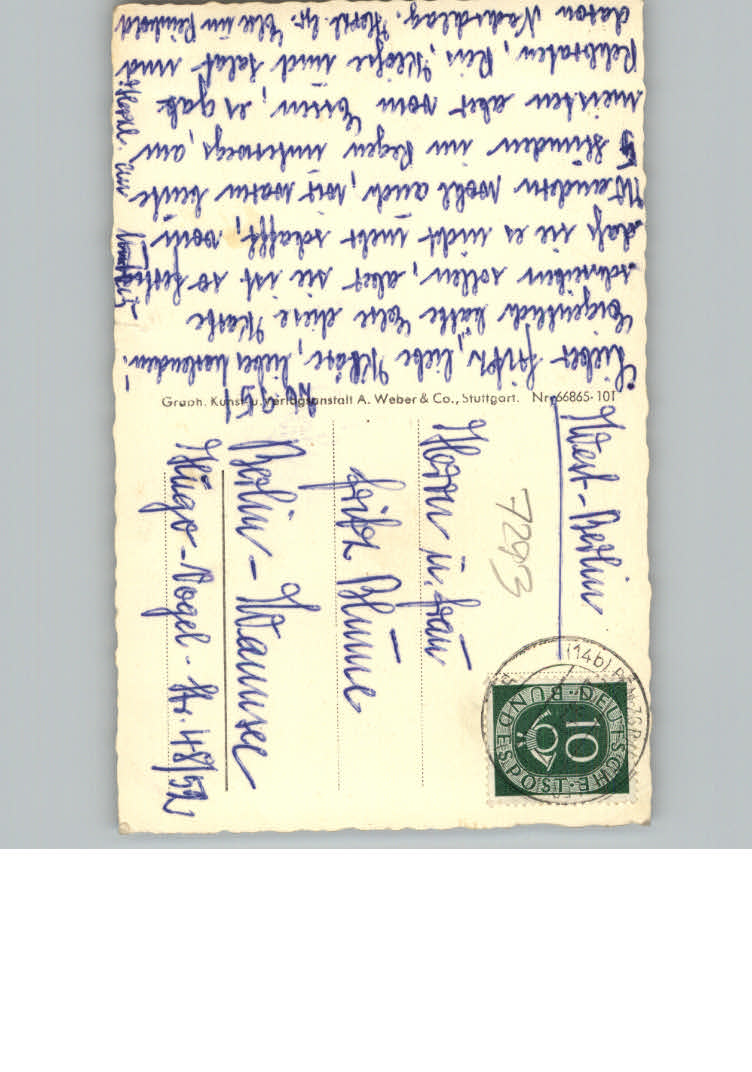 Lieber Fritz, liebe Kläre, lieber
Eigentlich hätte Else diese Karte
schreiben sollen, aber sie ist so
daß sie es nicht schafft, vom
Wandern wohl auch, wir waren heute
5 Stunden im Regen unterwegs, am
meisten aber vom Essen, es gab
Rehbraten, Reis, Klöße und Salat und
davon Nachschlag. Herzl. Gr. Else und Reinhold
Herzl.
Graph. Kunst- u. Verlagsanstalt A. Weber & Co., Stuttgart. Nr. 66865-101
West-Berlin
7293
Herrn u. Frau
Fritz Blume
Berlin-Wannsee
Hugo-Vogel-Str. 48/52
(14b)
10
DEUTSCHE BUNDESPOST